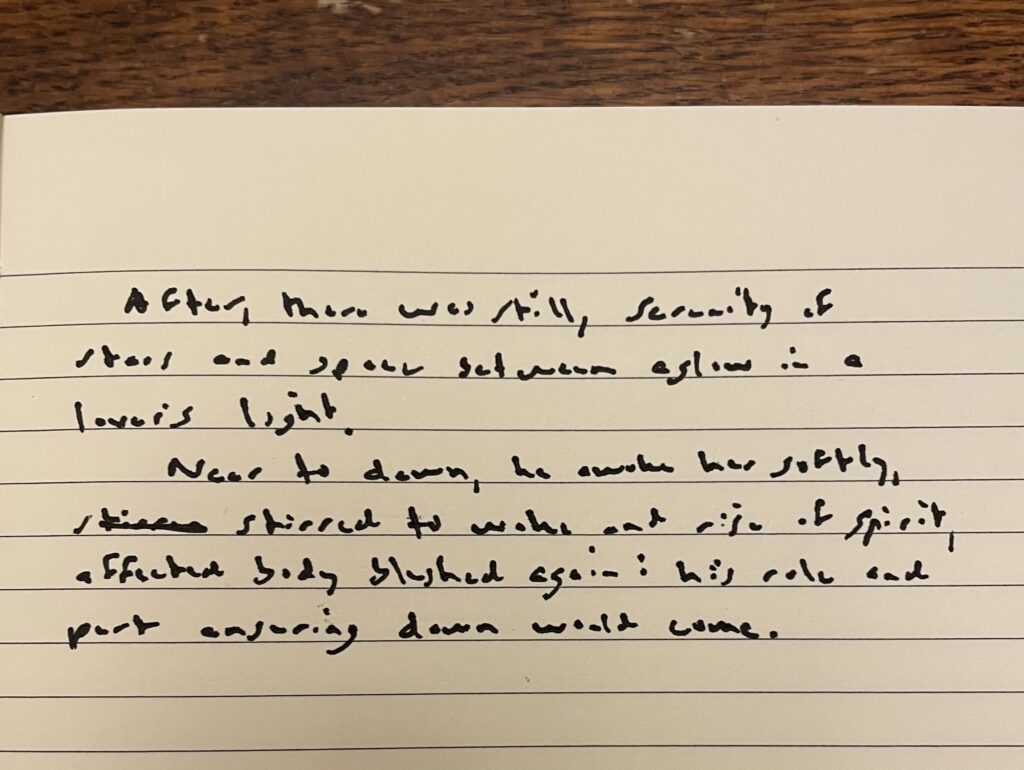 After, there was still, serenity of
stars and space between aglow in a
lover's light.
Near to dawn, he awoke her softly,
stirred to woke and rise of spirit,
affected body blushed again: his role and
part ensuring dawn would come.